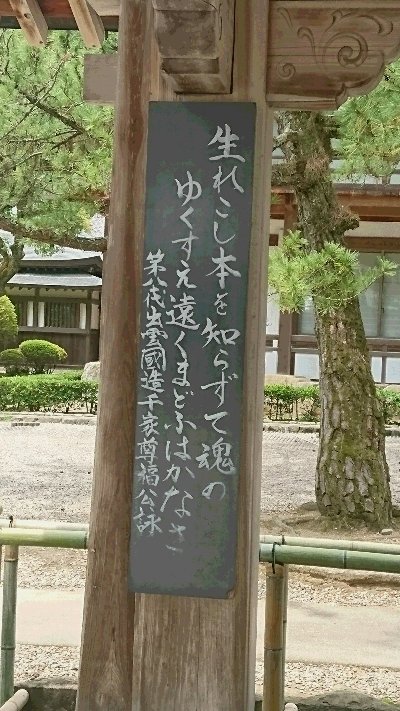 生れこし本を知らずて魂の
ゆくすえ遠くまどふはかなさ
第八代出雲國造千家尊福公詠